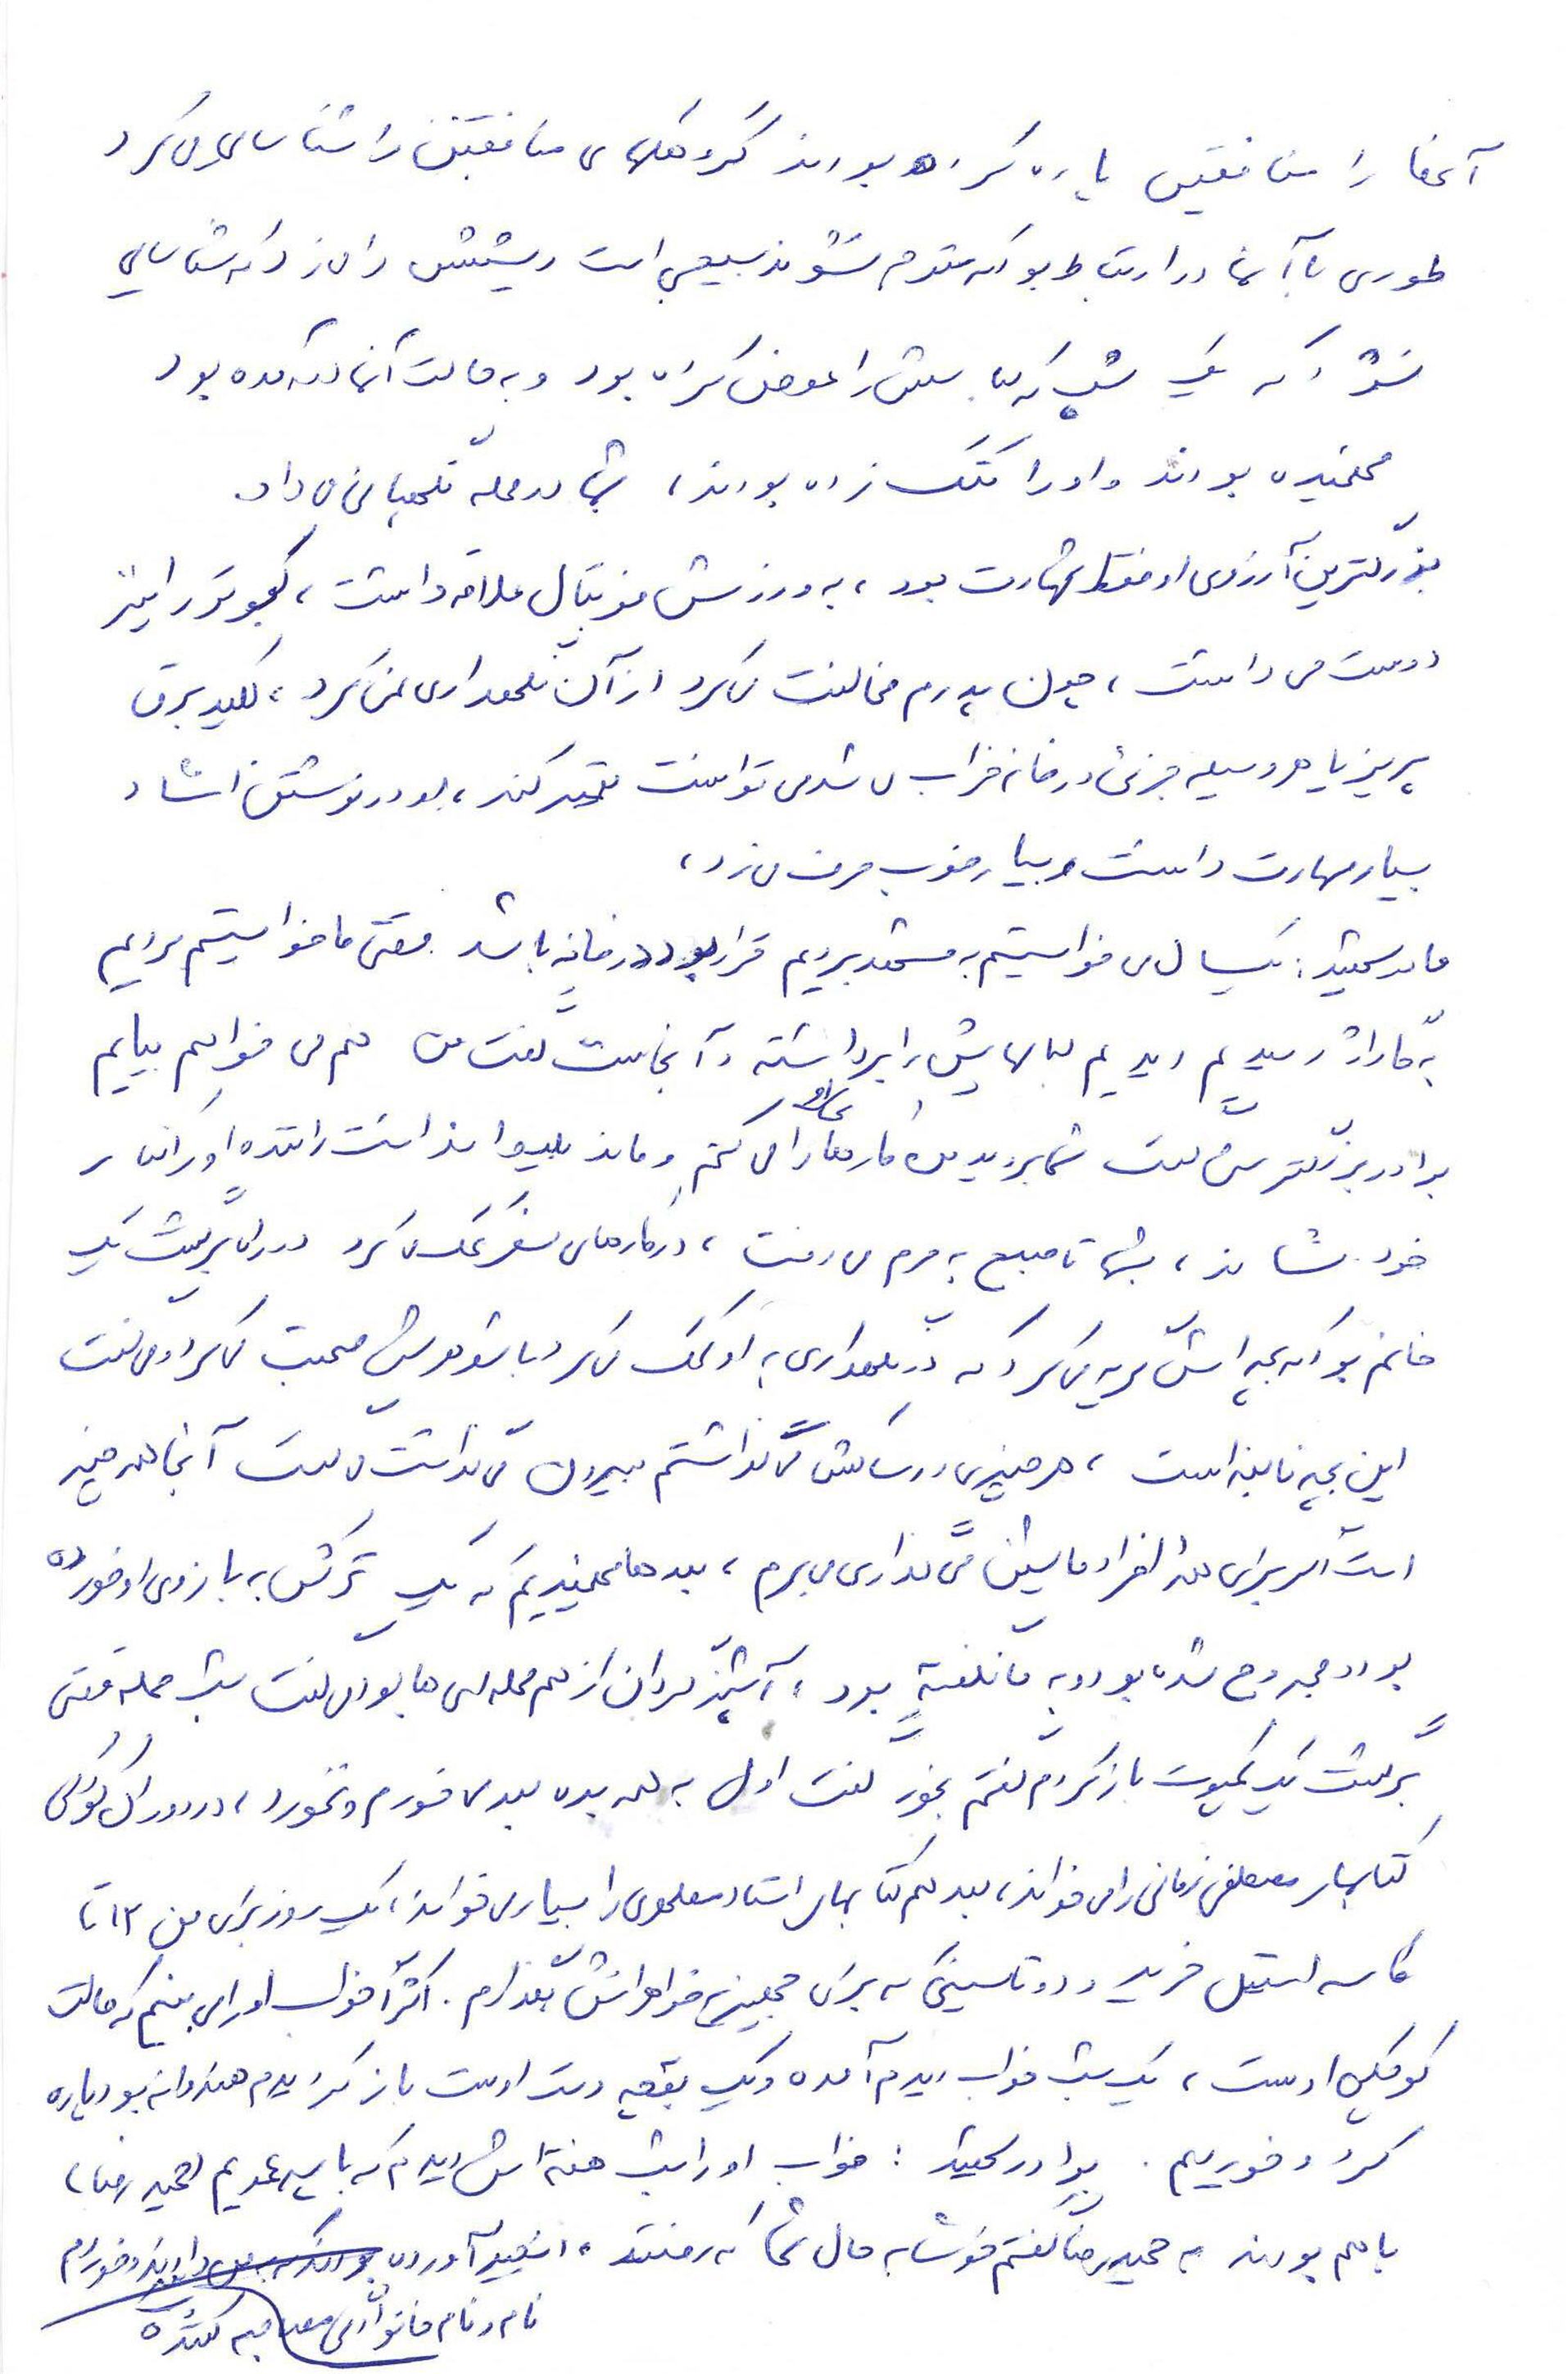 آنها را منافقین پاره کرده بودند گروهکهای منافقین را شناسایی می کرد
طوری با آنها در ارتباط بود که متوجه نشوند بسیجی است ریشش را می زد که شناسایی
نشود که یک شب که لباسش را عوض کرده بود و به حالت آنها درآمده بود
فهمیده بودند و او را کتک زده بودند، شبها در محله نگهبانی می داد
بزرگترین آرزوی او فقط شهادت بود، به ورزش فوتبال علاقه داشت، کبوتر را نیز
دوست می داشت، چون پدرم مخالفت می کرد از آن نگهداری نمی کرد، کلید برق
پریز یا هر وسیله جزئی در خانه خراب می شد می توانست تعمیر کند، او در نوشتن انشاء
بسیار مهارت داشت و بسیار خوب حرف می زد،
مادر شهید: یکسال می خواستیم به مشهد برویم قرار بود در خانه باشد وقتی ما خواستیم برویم
به گاراژ رسیدیم دیدیم لباسهایش را برداشته و آنجاست گفت من هم می خواهم بیایم
برادر بزرگترش گفت شما بروید من کارهای او را می کنم و ماند بلیط نداشت راننده او را کنار
خود نشاند، شبها تا صبح به حرم می رفت، در کارهای سفر کمک می کرد در راه برگشت یک
خانم بود که بچه اش گریه می کرد که در نگهداری به او کمک می کرد با شوهرش صحبت می کرد و می گفت
این بچه نابغه است، هر چیزی در ساکش می گذاشتم بیرون می گذاشت می گفت آنجا همه چیز
است اگر برای همه افراد ماشین می گذاری می برم، بعدها فهمیدیم که یک ترکش به بازوی او خورده
بود و مجروح شده بود و به ما نگفته بود، آشپز مردان از هم محله ای ها بود می گفت شب حمله وقتی
برگشت یک کمپوت باز کردم گفتم بخور گفت اول به همه بده بعد می خورم و نخورد، در دوران کودکی
کتابهای مصطفی زمانی را می خواند، بعد هم کتابهای استاد مطهری را بسیار می خواند، یک روز برای من ۱۲ تا
کاسه استیل خرید و دو تا سینی که برای جهیزیه خواهرانش بگذارم. اکثراً خواب او را می بینم که حالت
کودکی اوست، یک شب خواب دیدم آمده و یک بقچه دست اوست باز کرد دیدم هندوانه بود پاره
کرد و خوردیم. برادر شهید: خواب او را شب هفته اش دیدم که با پسرعمویم (حمید رضا)
با هم بودند به حمیدرضا گفتم خوشا به حال شما که رفتید،
نام و نام خانوادگی مصاحبه کننده